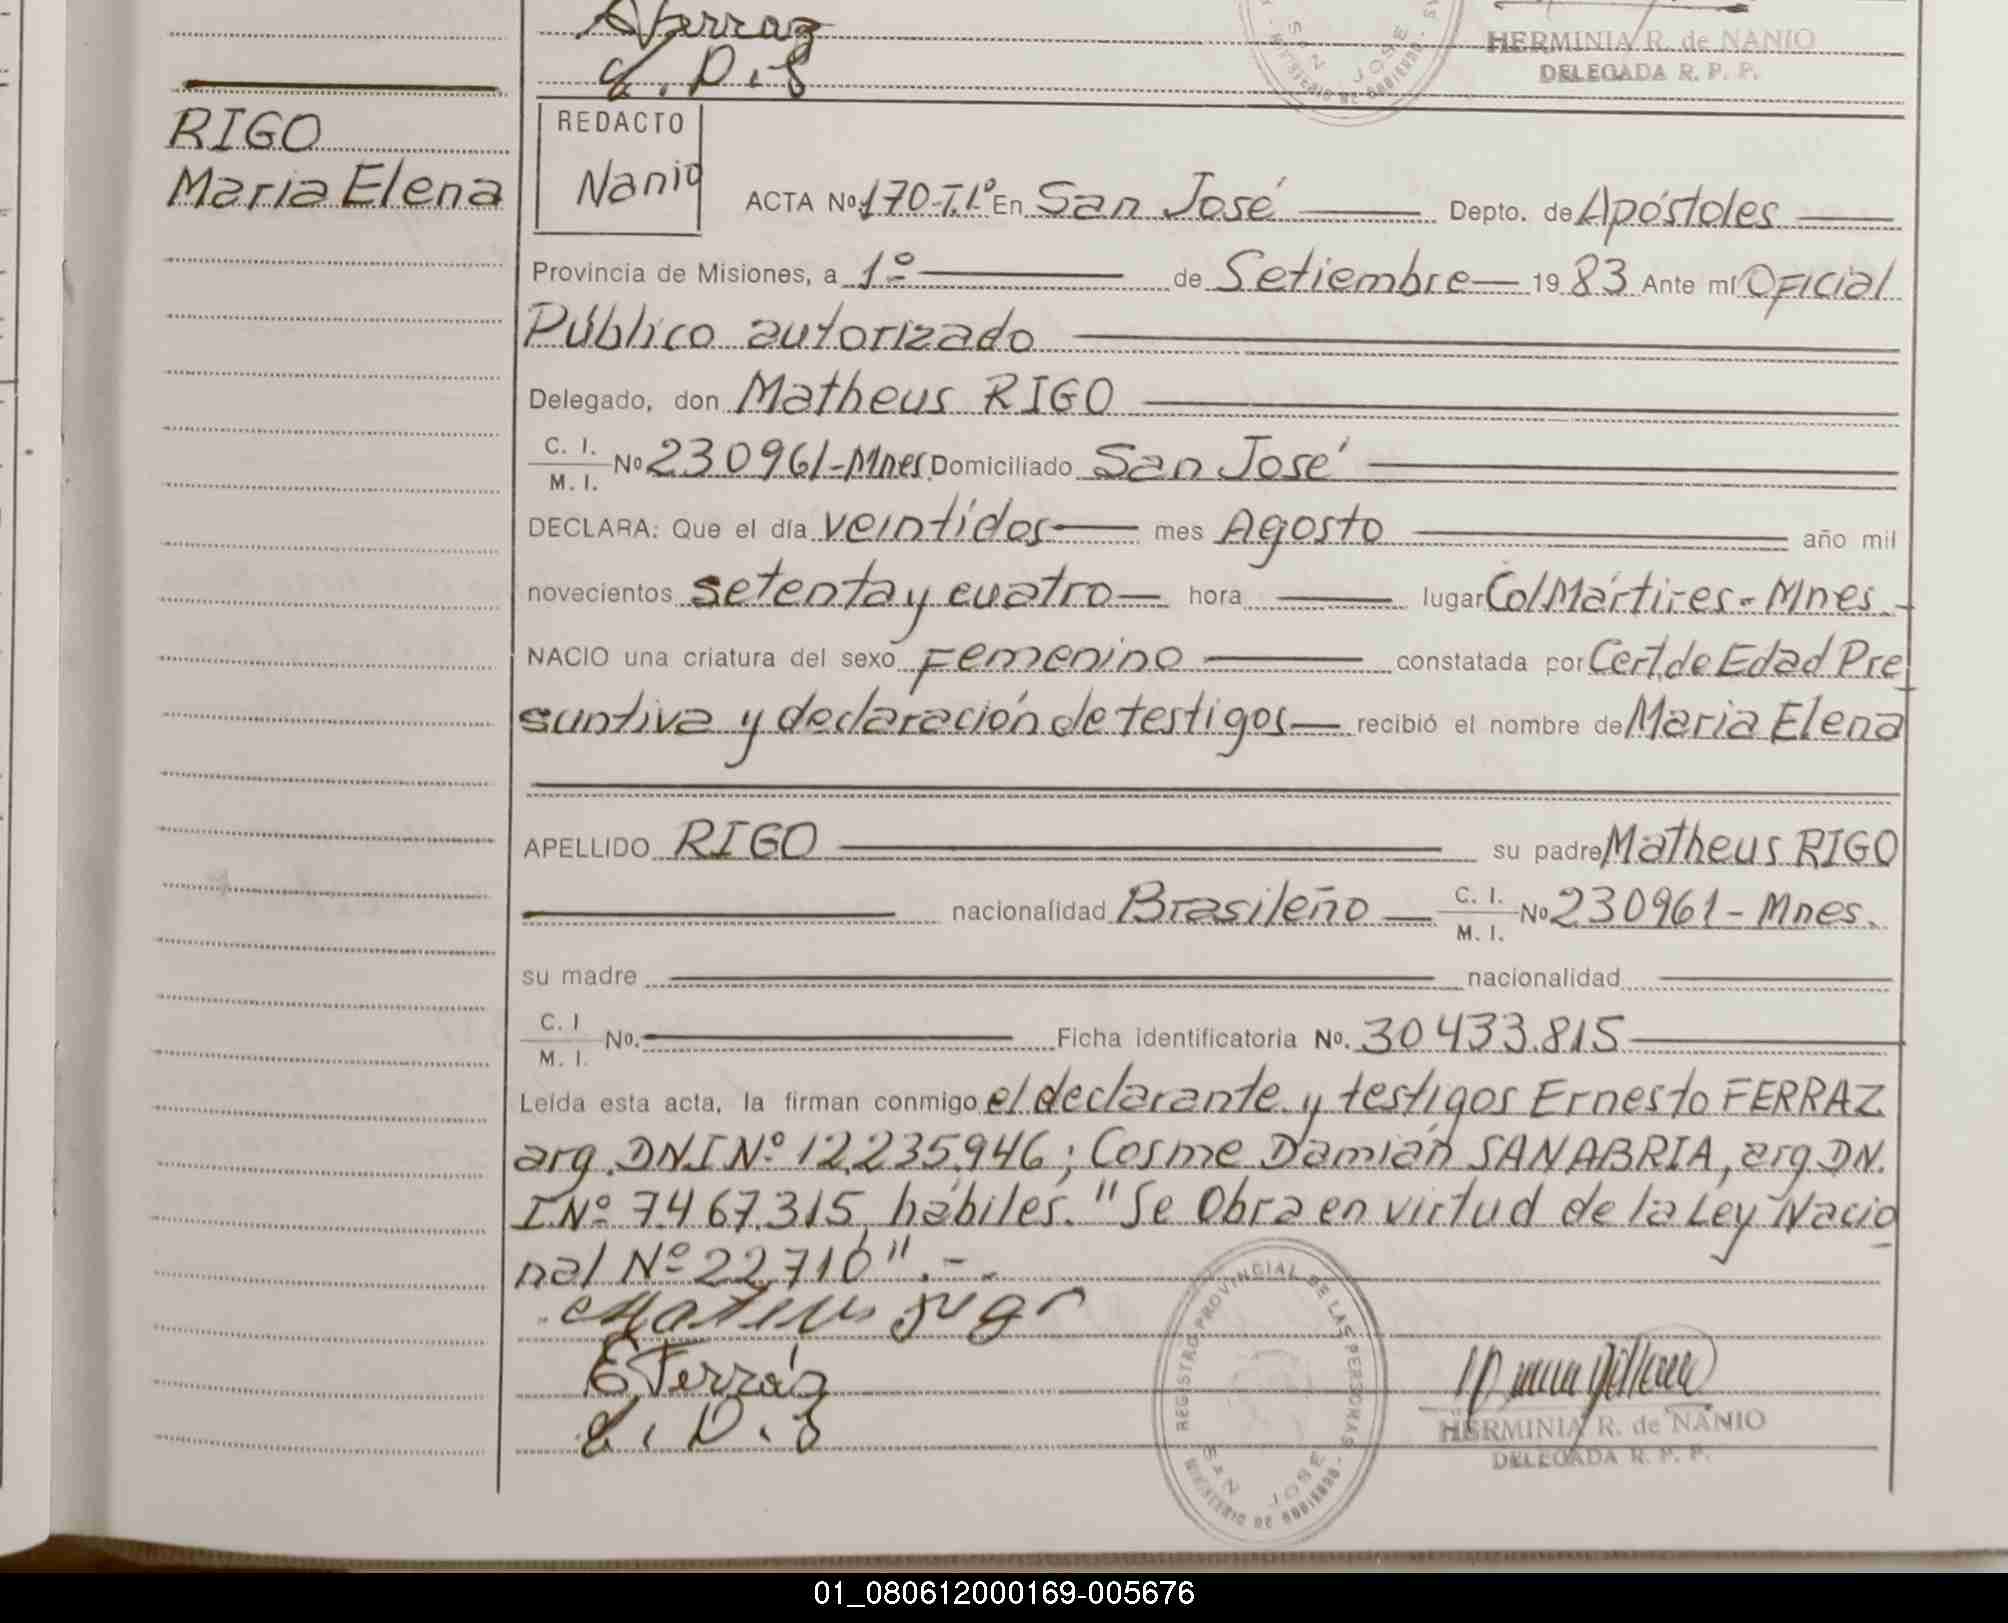 AFerraz
C. D. S
HERMINIA R. de NANIO
DELEGADA R. P. P.
SAN JOSE
RIGO
Maria Elena
REDACTO
Nanio
ACTA Nº 170-T.1º En San José Depto. de Apóstoles
Provincia de Misiones, a 1º de Setiembre 1983 Ante mí Oficial
Público autorizado
Delegado, don Matheus RIGO
C. I. / M. I. Nº 230961-Mnes. Domiciliado San José
DECLARA: Que el día veintidos mes Agosto año mil
novecientos setenta y cuatro hora lugar Col Mártires - Mnes.-
NACIO una criatura del sexo Femenino constatada por Cert. de Edad Pre
suntiva y declaración de testigos recibió el nombre de Maria Elena
APELLIDO RIGO su padre Matheus RIGO
nacionalidad Brasileño C. I. / M. I. Nº 230961 - Mnes.
su madre nacionalidad
C. I / M. I. No. Ficha identificatoria No. 30.433.815
Leída esta acta, la firman conmigo el declarante y testigos Ernesto FERRAZ
arg. DNI Nº 12.235.946; Cosme Damián SANABRIA, arg. DN.
I Nº 7.467.315, hábiles. "Se Obra en virtud de la Ley Nacio
nal Nº 22.710".-.
Mateus
E Ferráz
C. D. S
REGISTRO PROVINCIAL DE LAS PERSONAS
SAN JOSE
HERMINIA R. de NANIO
DELEGADA R. P. P.
01_080612000169-005676